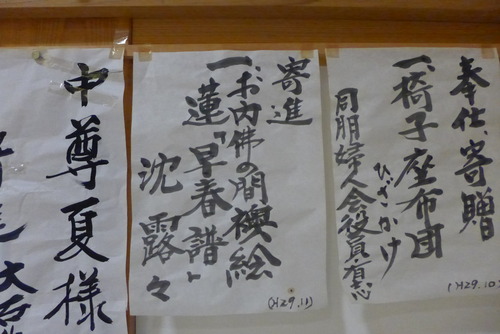 奉仕、寄贈
一、椅子座布団
ひざかけ
同朋婦人会役員・有志
(H29.10)
寄進
一、お内佛の間襖絵
蓮「早春譜」
沈露々
(H29.11)
中尊夏様